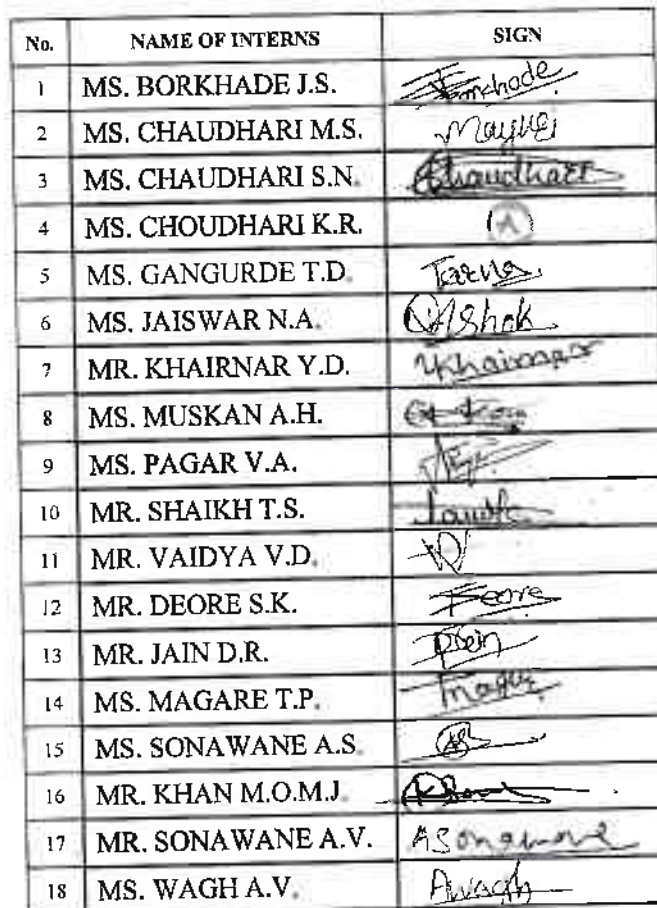 No. NAME OF INTERNS SIGN
1 MS. BORKHADE J.S. Borkhade
2 MS. CHAUDHARI M.S. Mayuri
3 MS. CHAUDHARI S.N. Chaudhari
4 MS. CHOUDHARI K.R. A
5 MS. GANGURDE T.D.
6 MS. JAISWAR N.A. NAshok
7 MR. KHAIRNAR Y.D. YKhairnar
8 MS. MUSKAN A.H.
9 MS. PAGAR V.A.
10 MR. SHAIKH T.S.
11 MR. VAIDYA V.D.
12 MR. DEORE S.K. Deore
13 MR. JAIN D.R.
14 MS. MAGARE T.P.
15 MS. SONAWANE A.S. AS
16 MR. KHAN M.O.M.J.
17 MR. SONAWANE A.V. ASonawane
18 MS. WAGH A.V. AWagh